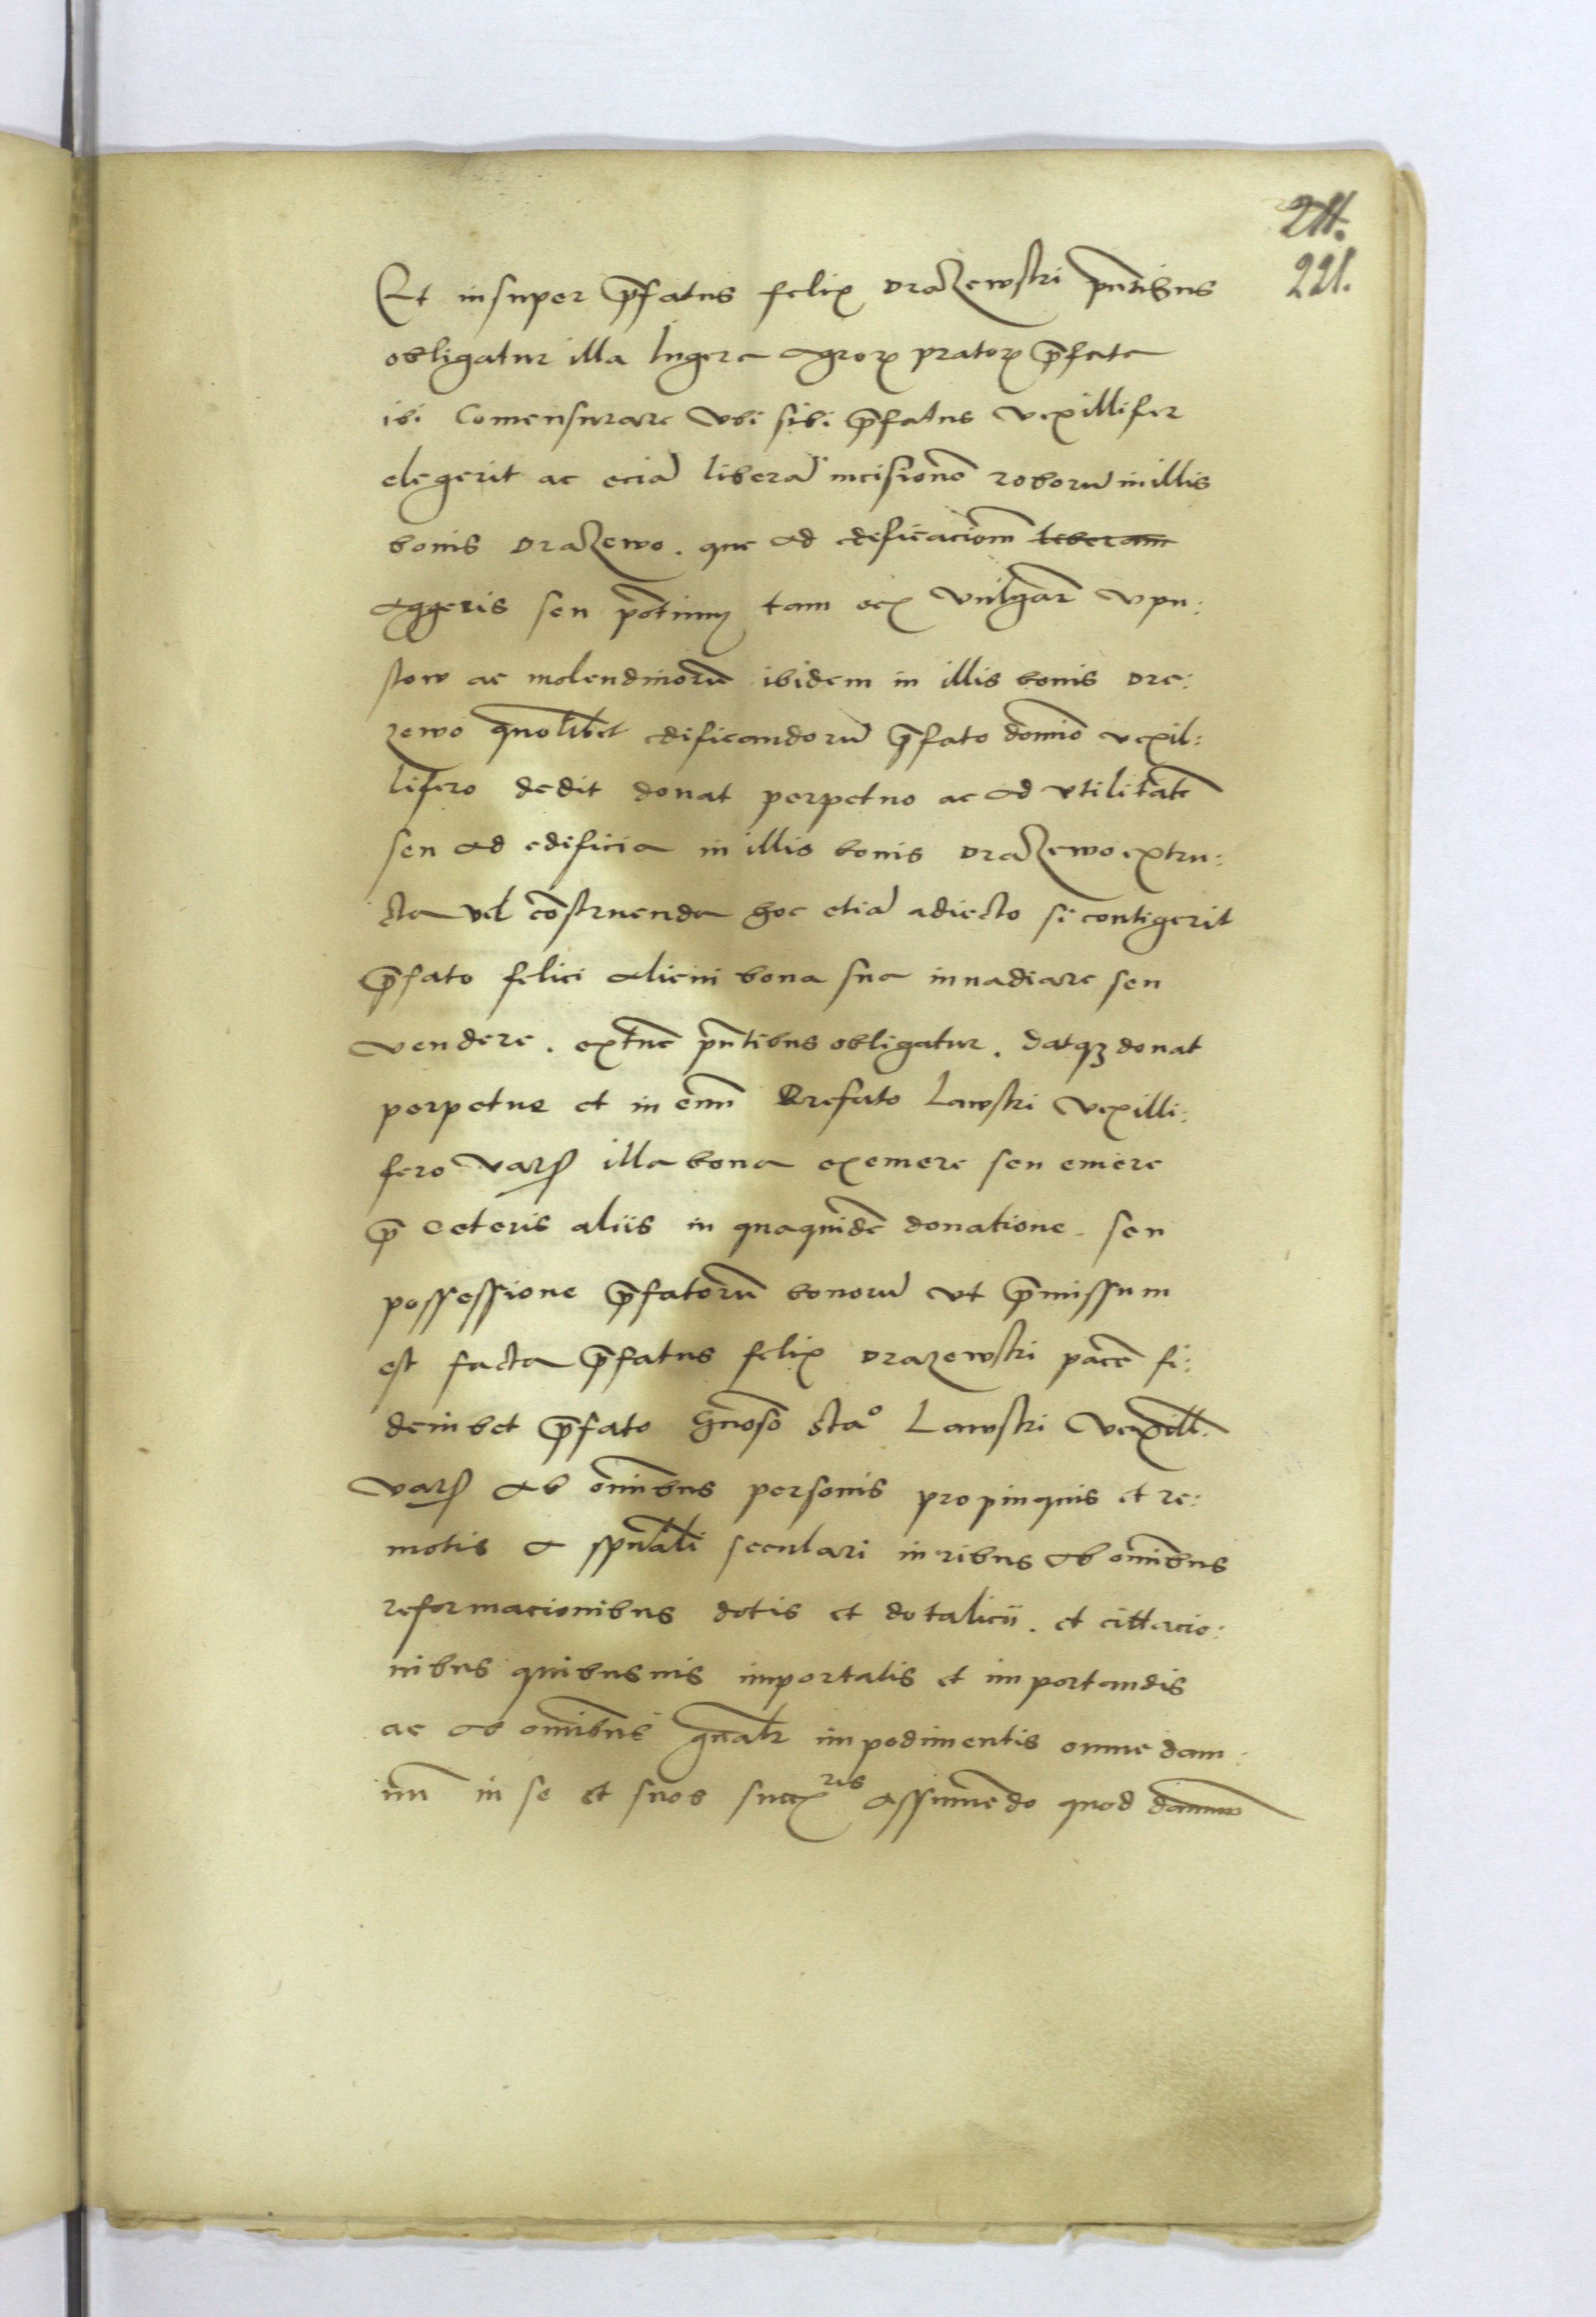 211.
221.
Et insuper p̄fatus felix Drazewski pn̄tibus
obligatur illa Iugera agroꝝ pratoꝝ p̄fata
ibi Comensurare vbi sibi p̄fatus vexillifer
elegerit ac eciā liberā incisionē roborū in illis
bonis Drazewo. que ad edificacionē liberam
Aggeris seu tam vulgar̄ vpu:
stow ac molendinorū ibidem in illis bonis Dra:
zewo quotl̄bet edificandorū p̄fato domīo vexil:
lifero dedit donat perpetuo ac ad vtilitatē
seu ad edificia in illis bonis Drazewo extru:
cta vel cōstruenda hoc etiā adiecto si contigerit
p̄fato felici alicui bona sua inuadiare seu
vendere. extūc pn̄tibus obligatur. datqꝫ donat
perpetue et in eūm Prefato Lawski Vexilli:
fero Vars illa bona exemere seu emere
p̄ ceteris aliis in quaquidē donatione seu
possessione p̄fatorū bonorū vt p̄missum
est facta p̄fatus felix Drazewski pacē fi:
deiubet p̄fato Gn̄oso Sta° Lawski Vexill.
Vars ab om̄ibus personis propinquis et re:
motis a spūali seculari iuribus ab om̄ibus
reformacionibus dotis et dotalicii. et cittacio:
nibus quibusuis importatis et importandis
ac ab om̄ibus gn̄alr impedimentis omne dam:
nū in se et suos succ̄res assumēdo quod damnum